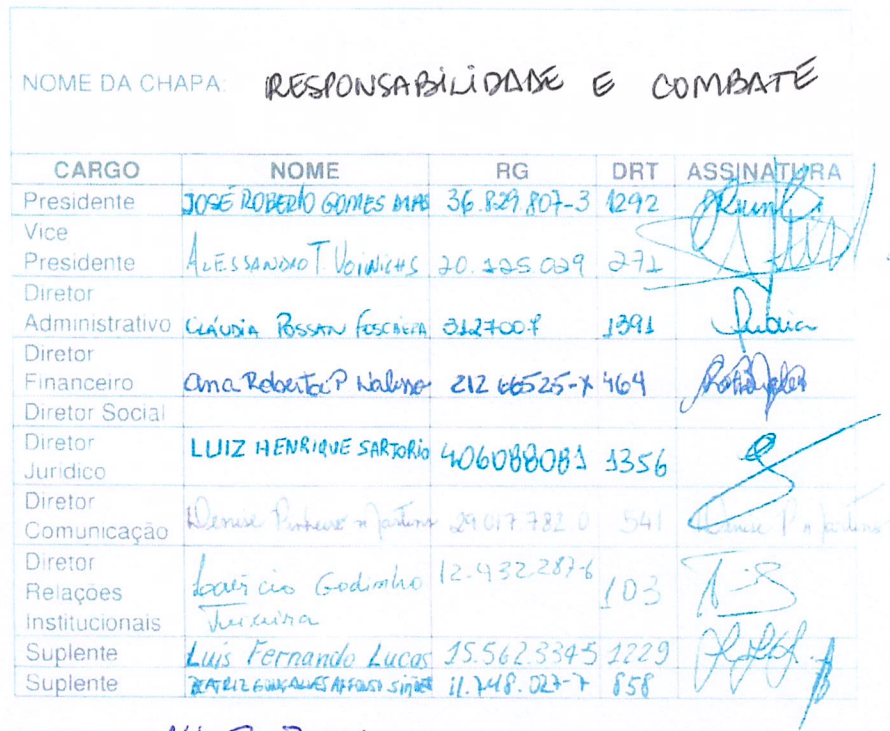 NOME DA CHAPA: RESPONSABILIDADE E COMBATE
CARGO NOME RG DRT ASSINATURA
Presidente JOSÉ ROBERTO GOMES MAS 36.829.807-3 1292
Vice
Presidente ALESSANDRO T. VOINICHS 20.125.029 271
Diretor
Administrativo CLÁUDIA POSSAN 312700-7 1391
Diretor
Financeiro Ana Roberta P 212 66525-X 464
Diretor Social
Diretor
Jurídico LUIZ HENRIQUE SARTORIO 406088081 1356
Diretor
Comunicação Denise Pinheiro M Martins 29.017.782 0 541 Denise P M Martins
Diretor
Relações Godinho 12.432.287-6 103
Institucionais Teixeira
Suplente Luis Fernando Lucas 15.562.3345 1229
Suplente BEATRIZ GONÇALVES AFFONSO SIMÕES 11.748.027-7 858